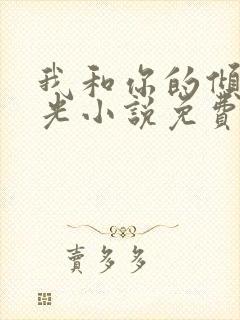 我和你的傾
光小說免費
賣多多